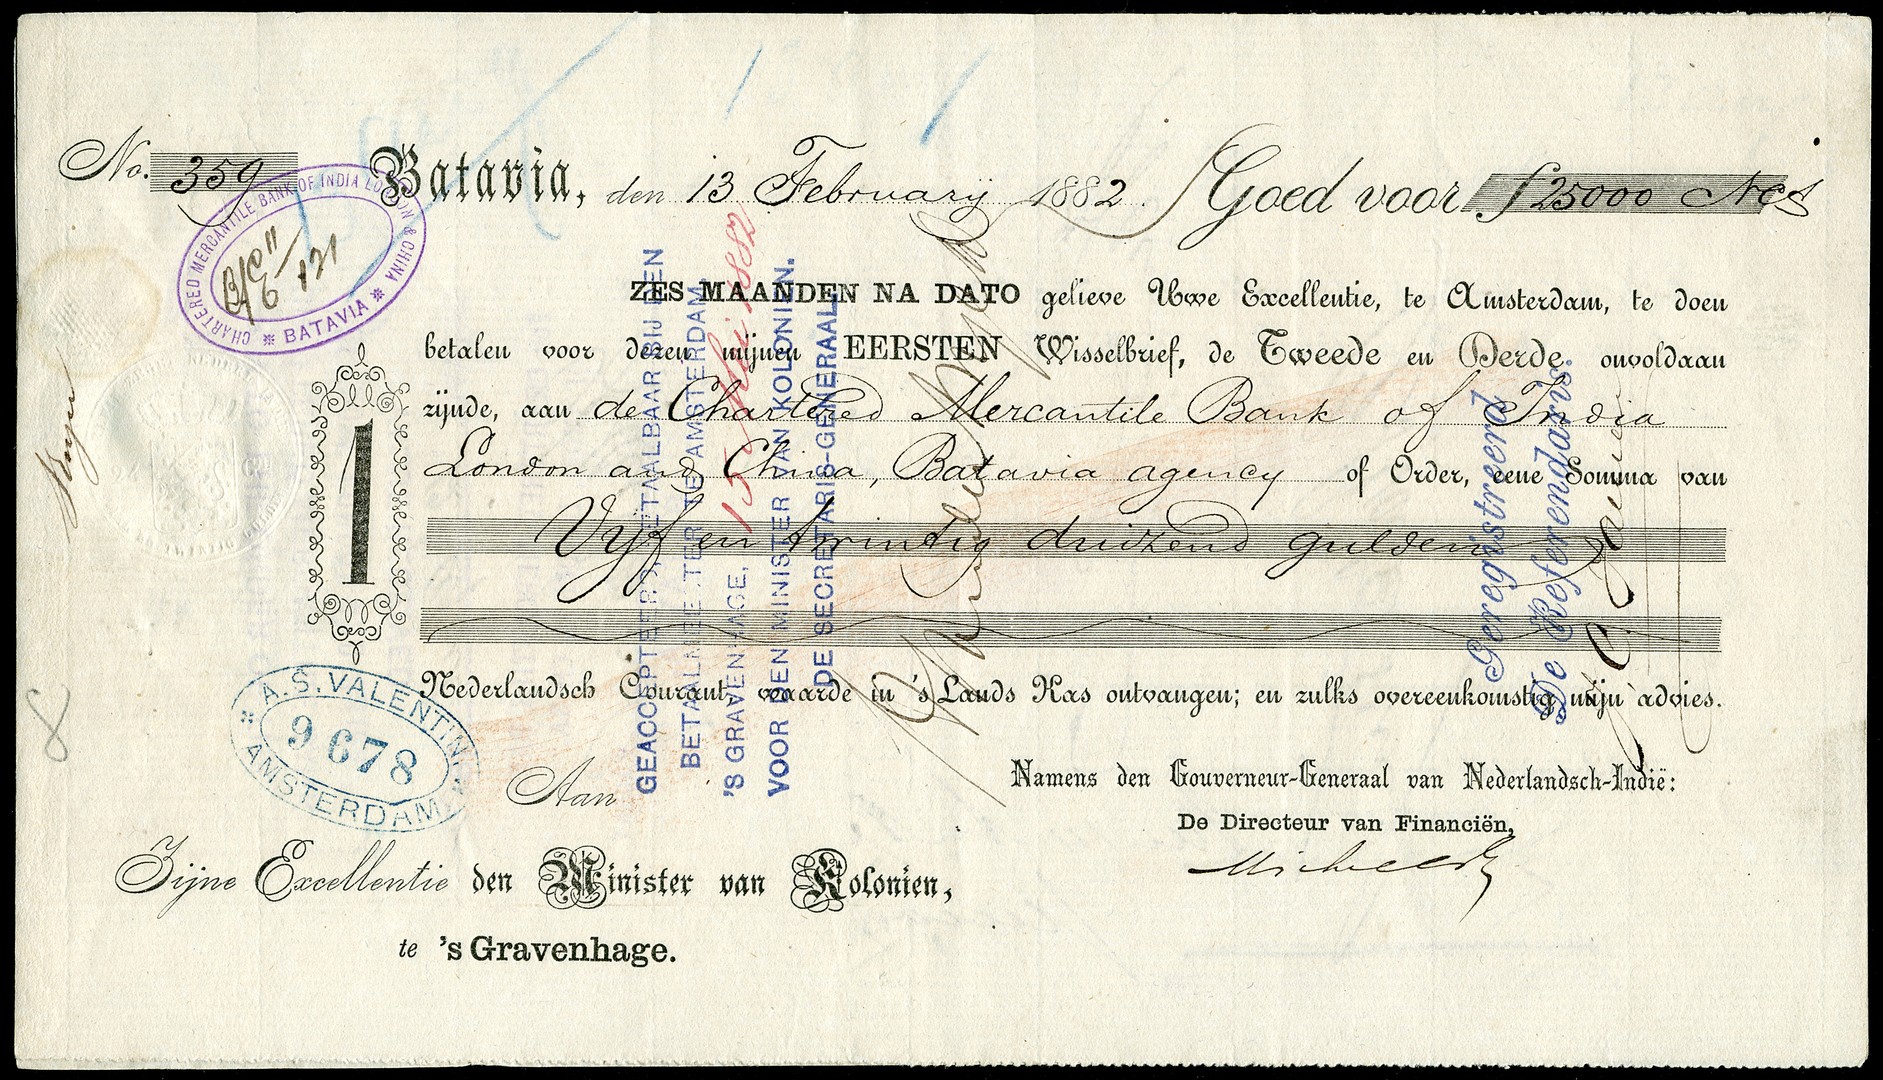 No. 359
Batavia, den 13 Februarij 1882. Goed voor ƒ 25000 Nct
CHARTERED MERCANTILE BANK OF INDIA LONDON & CHINA
BATAVIA
B/C 11
121
ZES MAANDEN NA DATO gelieve Uwe Excellentie, te Amsterdam, te doen
betalen voor dezen mijnen EERSTEN Wisselbrief, de Tweede en Derde onvoldaan
zijnde, aan de Chartered Mercantile Bank of India
London and China, Batavia agency of Order, eene Somma van
Vijf en twintig duizend gulden
Nederlandsch Courant, waarde in 's Lands Kas ontvangen; en zulks overeenkomstig mijn advies.
1
GEACCEPTEERD, BETAALBAAR BIJ DEN
BETAALMEESTER TE AMSTERDAM
'S GRAVENHAGE, 15 Mei 1882
VOOR DEN MINISTER VAN KOLONIEN.
DE SECRETARIS-GENERAAL
Geregistreerd
De Referendaris.
A.S. VALENTIN.
9678
AMSTERDAM
8
Namens den Gouverneur-Generaal van Nederlandsch-Indië:
De Directeur van Financiën,
Aan
Zijne Excellentie den Minister van Kolonien,
te 's Gravenhage.